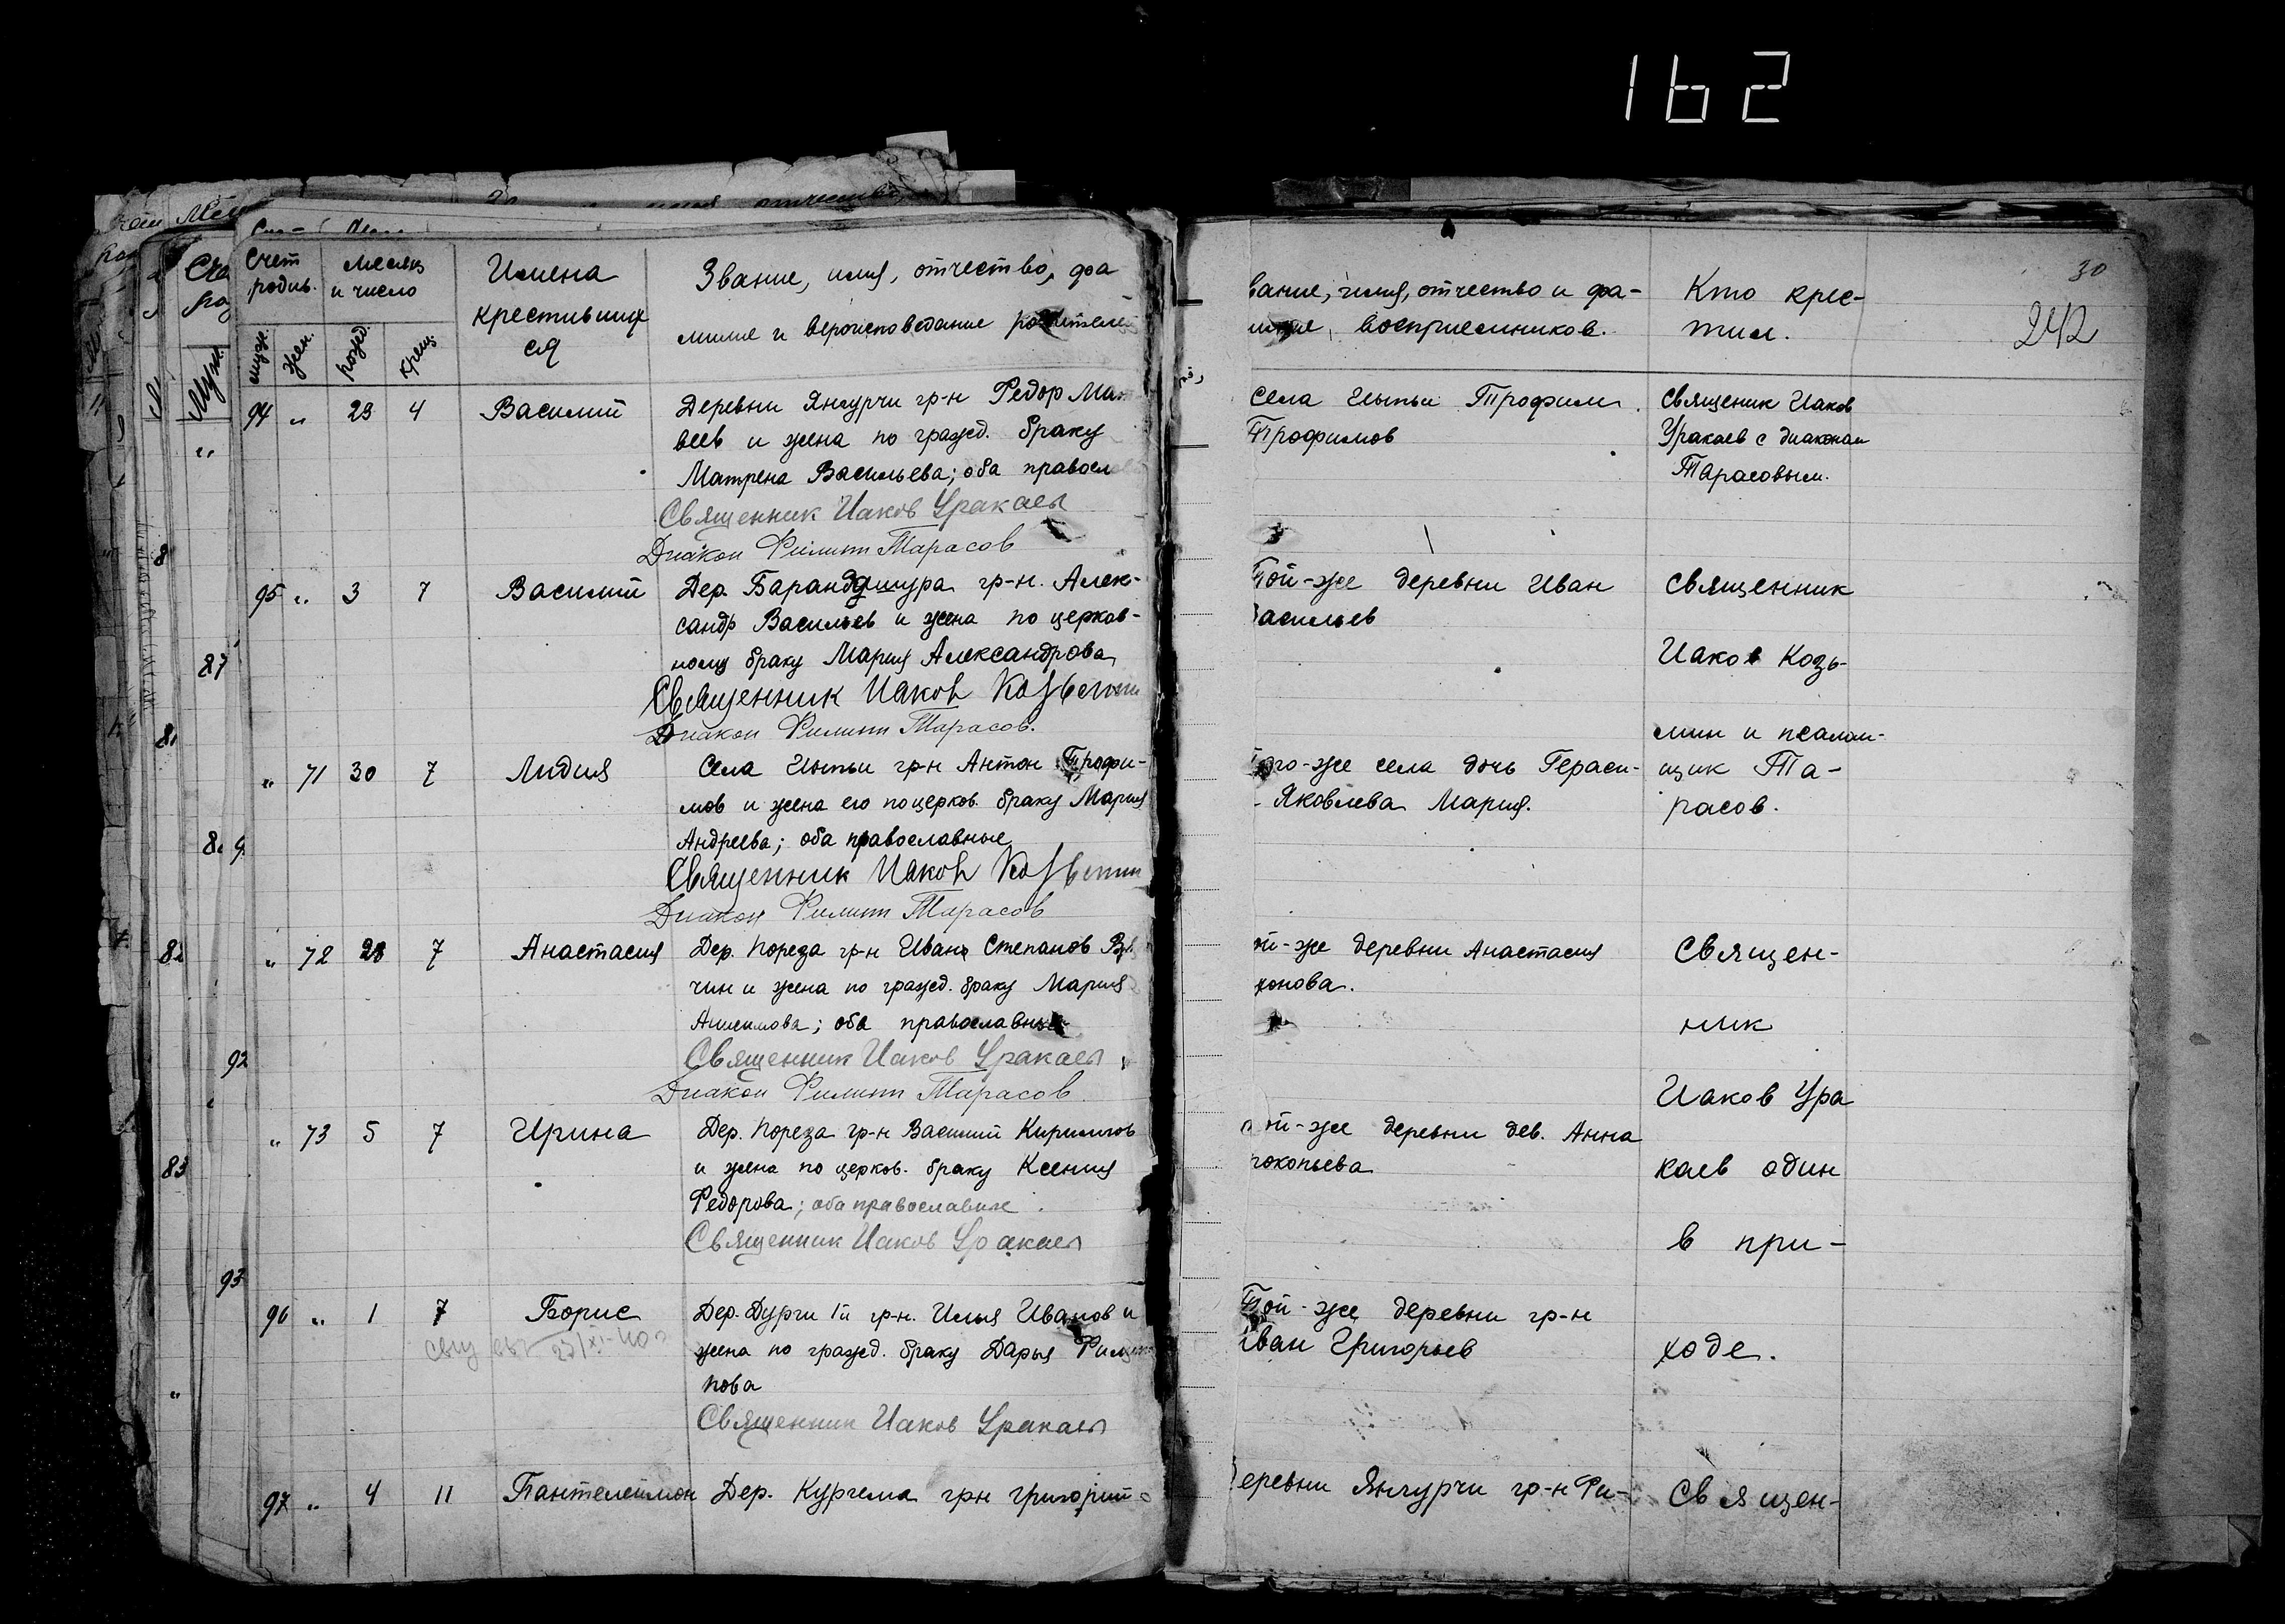 162
30
242
Счет родив.
месяц и число
Имена крестившихся
Звание, имя, отчество, фа
милие и вероисповедание родителей
муж.
жен.
рожд.
крещ.
94 „ 29 4 Василий
Деревни Янгурчи гр-н Федор Мат
веев и жена по гражд. браку
Матрена Васильева; оба правосл
Священник Иаков Уракаев
Диакон Филипп Тарасов
95 „ 3 7 Василий
Дер. Барандашура гр-н. Алек-
сандр Васильев и жена по церков-
ному браку Мария Александрова
Священник Иаков Козьмин
Диакон Филипп Тарасов.
„ 71 30 7 Лидия
Села Цыпьи гр-н Антон Трофи-
мов и жена его по церков. браку Мария
Андреева; оба православные
Священник Иаков Козьмин
Диакон Филипп Тарасов
„ 72 28 7 Анастасия
Дер. Пореза гр-н Иван Степанов
чин и жена по гражд. браку Мария
Анисимова; оба православные
Священник Иаков Уракаев
Диакон Филипп Тарасов
„ 73 5 7 Ирина
Дер. Пореза гр-н Василий Кириллов
и жена по церков. браку Ксения
Федорова; оба православные
Священник Иаков Уракаев
96 „ 1 7 Борис
Дер. Дурги 1й гр-н. Илья Иванов и
жена по гражд. браку Дарья Филип
пова
Священник Иаков Уракаев
97 „ 4 11 Пантелеимон
Дер. Кургема грн Григорий
вание, имя, отчество и фа-
милие восприемников.
Кто крес-
тил.
села Цыпьи Трофим
Трофимов
Священик Иаков
Уракаев с диаконом
Тарасовым.
Той-же деревни Иван
асильев
Священник
Иаков Козь-
мин и псалом-
щик Та-
расов.
ого-же села дочь Гераси-
Яковлева Мария.
ой-же деревни Анастасия
хонова.
Священ-
ник
Иаков Ура
каев один
в при-
ходе.
ой-же деревни дев. Анна
рокопьева
Той-же деревни гр-н
Иван Григорьев
еревни Янгурчи гр-н Фи-
Священ-